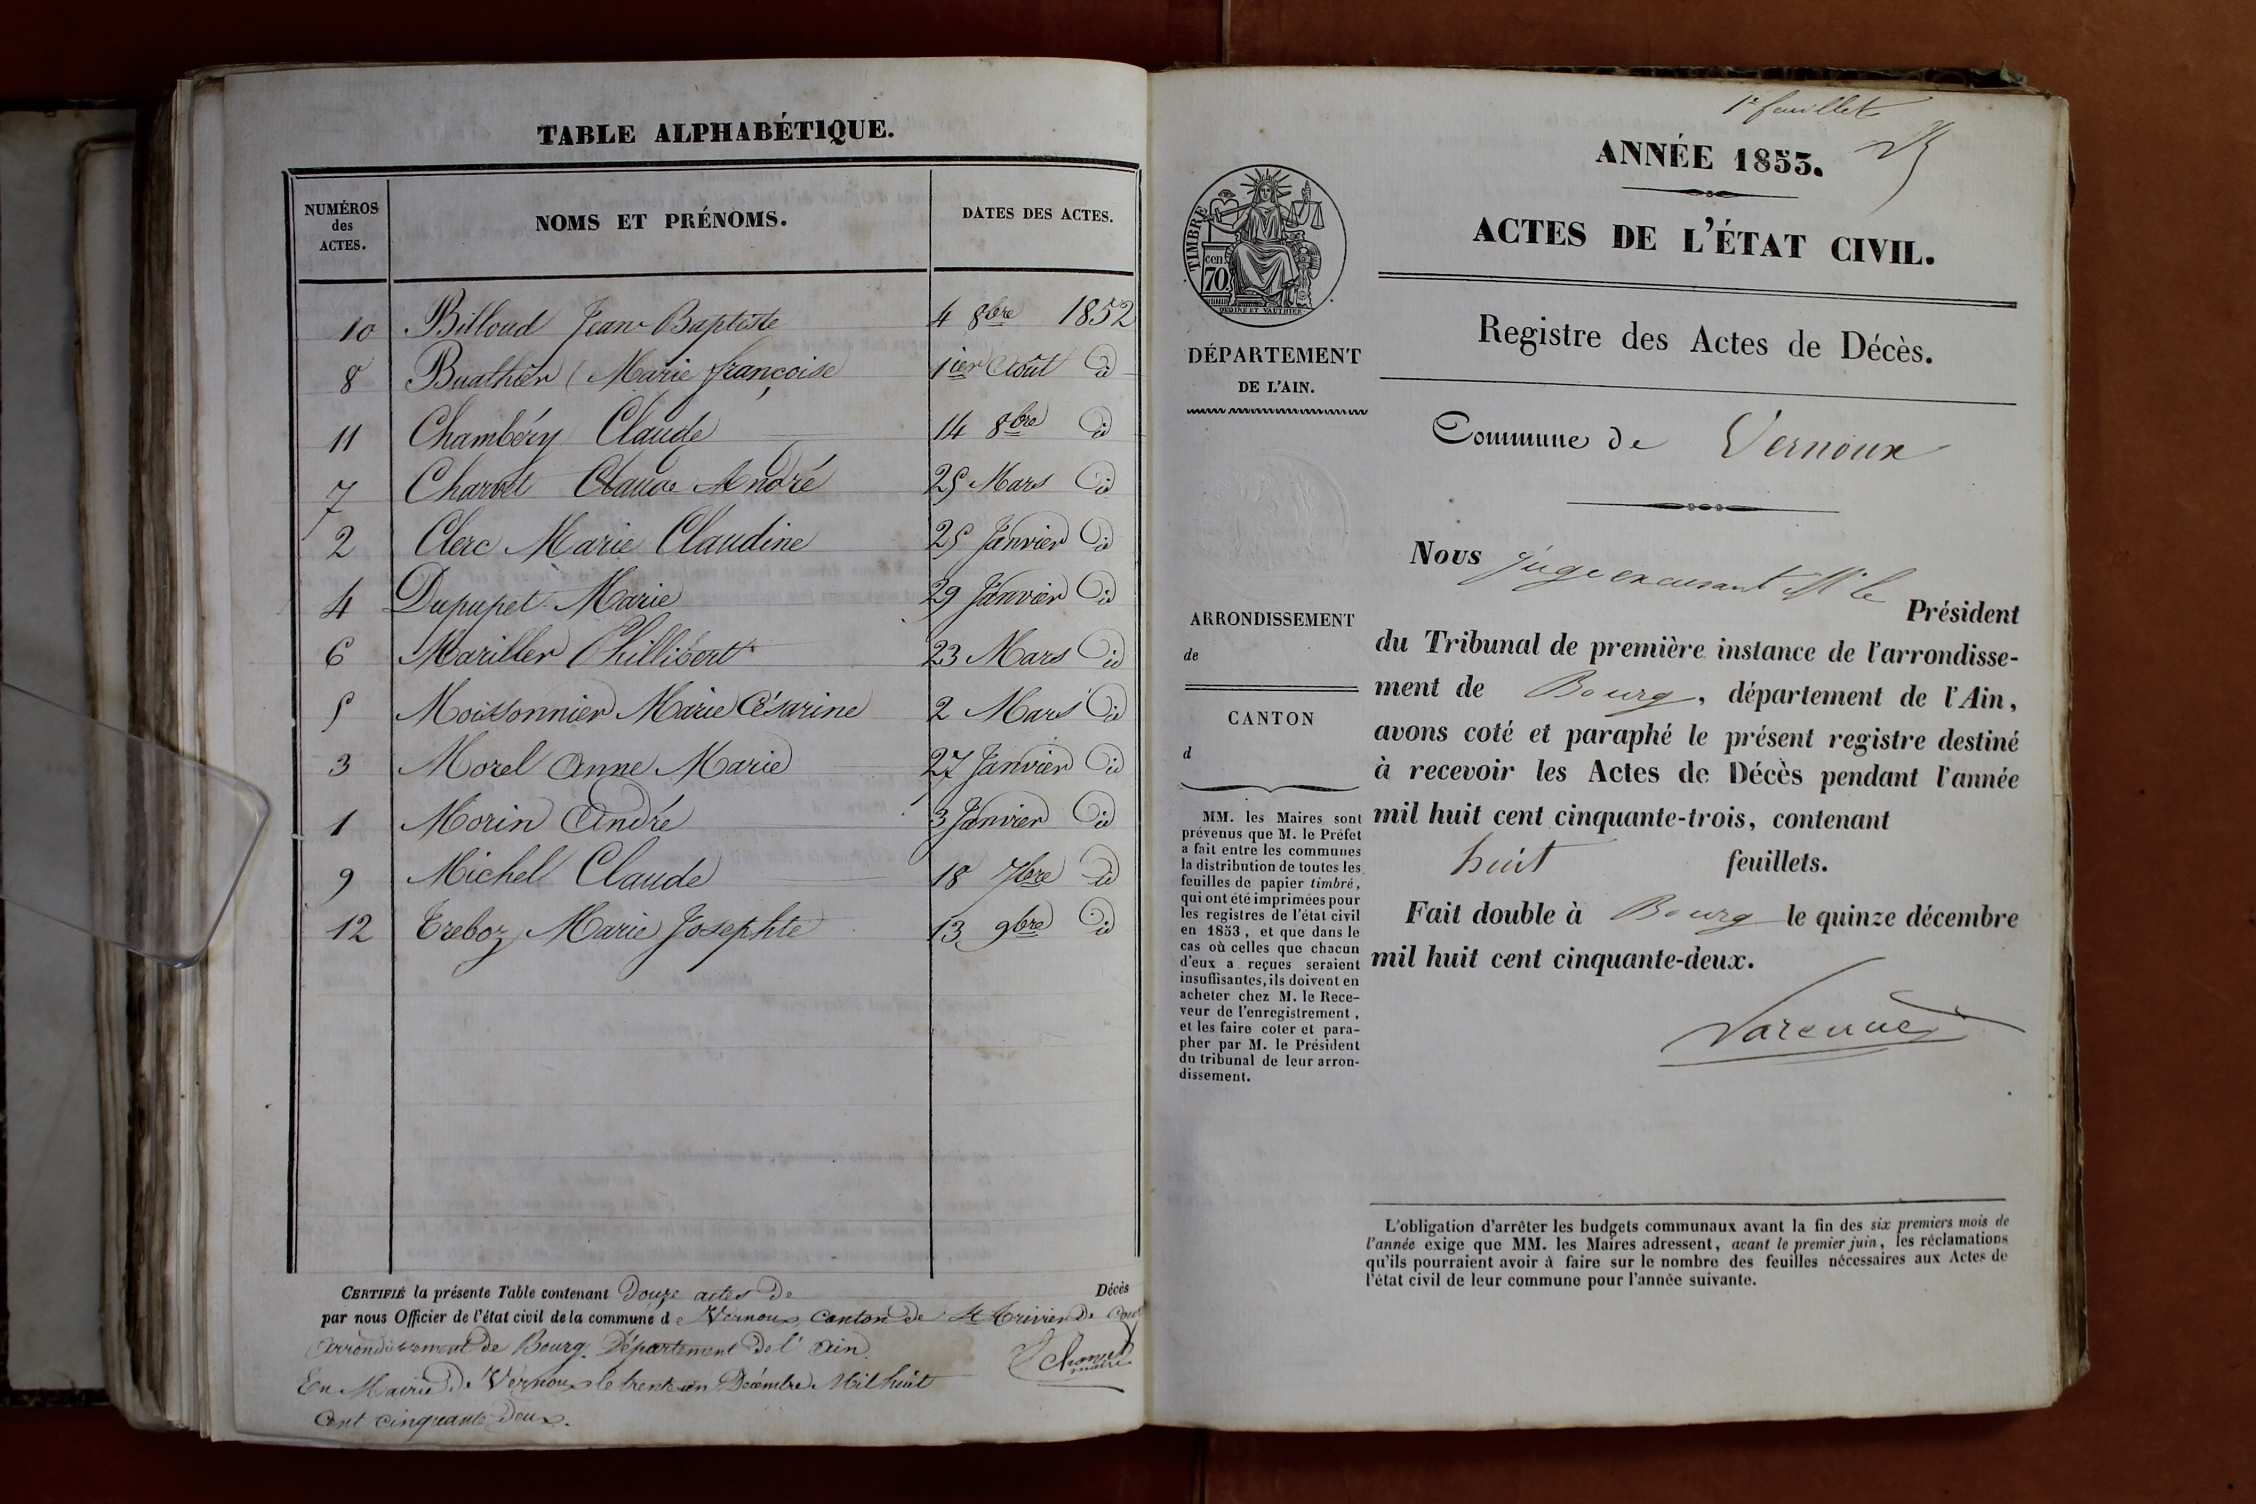 TABLE ALPHABÉTIQUE.
NUMÉROS des ACTES. NOMS ET PRÉNOMS. DATES DES ACTES.
10 Billoud Jean Baptiste 4 8bre 1852
8 Buathier Marie françoise 1ier Août id
11 Chambéry Claude 14 8bre id
7 Charvet Claude André 25 Mars id
2 Clerc Marie Claudine 25 Janvier id
4 Dupupet Marie 29 Janvier id
6 Mariller Phillibert 23 Mars id
5 Moissonnier Marie Césarine 2 Mars id
3 Morel Anne Marie 27 Janvier id
1 Morin André 3 Janvier id
9 Michel Claude 18 7bre id
12 Treboz Marie Josephte 13 9bre id
CERTIFIÉ la présente Table contenant Douze actes de Décès
par nous Officier de l'état civil de la commune de Vernoux canton de St Trivier de Cour
arrondissement de Bourg Département de l'Ain
En Mairie de Vernoux le trente un Décembre Mil huit
Cent cinquante Deux.
maire
1er feuillet
ANNÉE 1853.
ACTES DE L'ÉTAT CIVIL.
Registre des Actes de Décès.
TIMBRE
70 cen
OUDINE ET VAUTHIER
DÉPARTEMENT
DE L'AIN.
Commune de Vernoux
ARRONDISSEMENT
de
CANTON
d
MM. les Maires sont
prévenus que M. le Préfet
a fait entre les communes
la distribution de toutes les
feuilles de papier timbré,
qui ont été imprimées pour
les registres de l'état civil
en 1853, et que dans le
cas où celles que chacun
d'eux a reçues seraient
insuffisantes, ils doivent en
acheter chez M. le Rece-
veur de l'enregistrement,
et les faire coter et para-
pher par M. le Président
du tribunal de leur arron-
dissement.
Nous Juge excusant Mr le
Président
du Tribunal de première instance de l'arrondisse-
ment de Bourg, département de l'Ain,
avons coté et paraphé le présent registre destiné
à recevoir les Actes de Décès pendant l'année
mil huit cent cinquante-trois, contenant
huit feuillets.
Fait double à Bourg le quinze décembre
mil huit cent cinquante-deux.
Varenne
L'obligation d'arrêter les budgets communaux avant la fin des six premiers mois de
l'année exige que MM. les Maires adressent, avant le premier juin, les réclamations
qu'ils pourraient avoir à faire sur le nombre des feuilles nécessaires aux Actes de
l'état civil de leur commune pour l'année suivante.